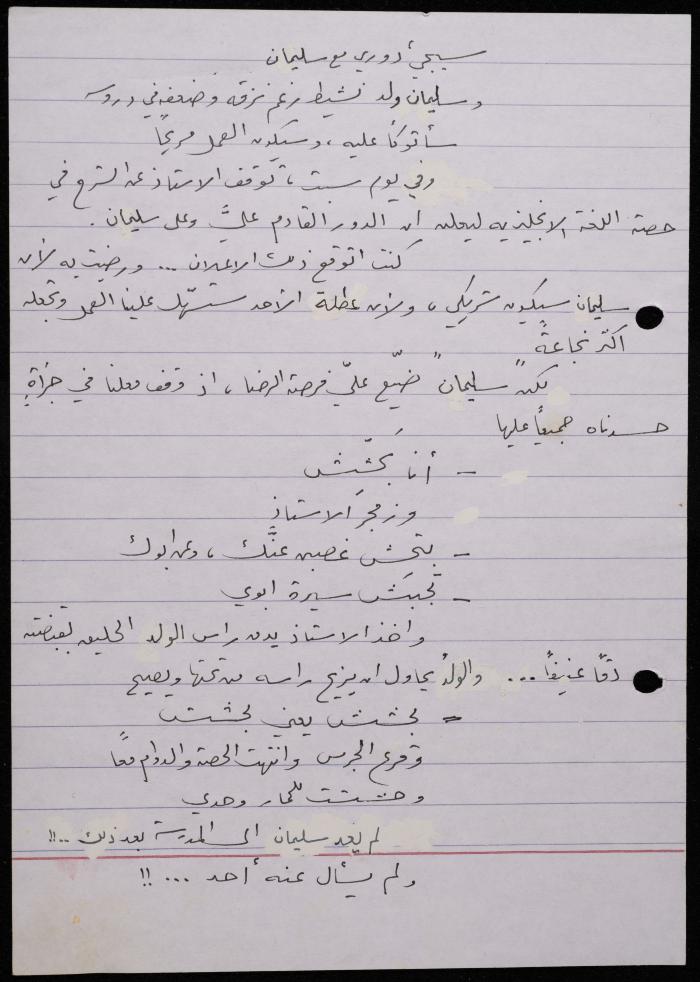 سيجيء دوري مع سليمان
وسليمان ولد نشيط رغم نزقه وضعفه في دروسه
سأتوكأ عليه ، وسيكون العمل مريحاً
وفي يوم سبت ، توقف الاستاذ عن الشرح في
حصة اللغة الانجليزيه ليعلن ان الدور القادم عليَّ وعلى سليمان .
كنت اتوقع ذلك الاعلان ... ورضيت به لأن
سليمان سيكون شريكي ، ولأن عطلة الأحد ستسهّل علينا العمل وتجعله
اكثر نجاعةً
لكن " سليمان " ضيّع عليّ فرصة الرضا ، اذ وقف معلنا في جرأةٍ
حسدناه جميعاً عليها
- أنا بَحِشّش
وزمجر الاستاذ
- بتحش غصبن عنّك ، وعن ابوك
- تجبش سيرة ابوي
واخذ الاستاذ يدق راس الولد الحليق بقبضته
دقاً عنيفاً ... والولدُ يحاول ان يزيح راسه من تحتها ويصيح
- بحشش يعني بحشش
وقرع الجرس وانتهت الحصة والدوام معاً
وحششت للحمار وحدي
لم يعد سليمان الى المدرسة بعد ذلك ..!!
ولم يسأل عنه أحد ... !!